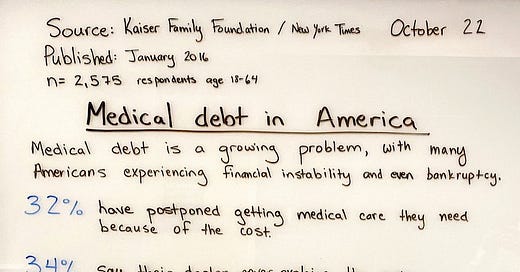 Source: Kaiser Family Foundation / New York Times October 22
Published: January 2016
n= 2,575 respondents age 18-64
Medical debt in America
Medical debt is a growing problem, with many
Americans experiencing financial instability and even bankruptcy.
32% have postponed getting medical care they need
because of the cost.
34% say their doctor never